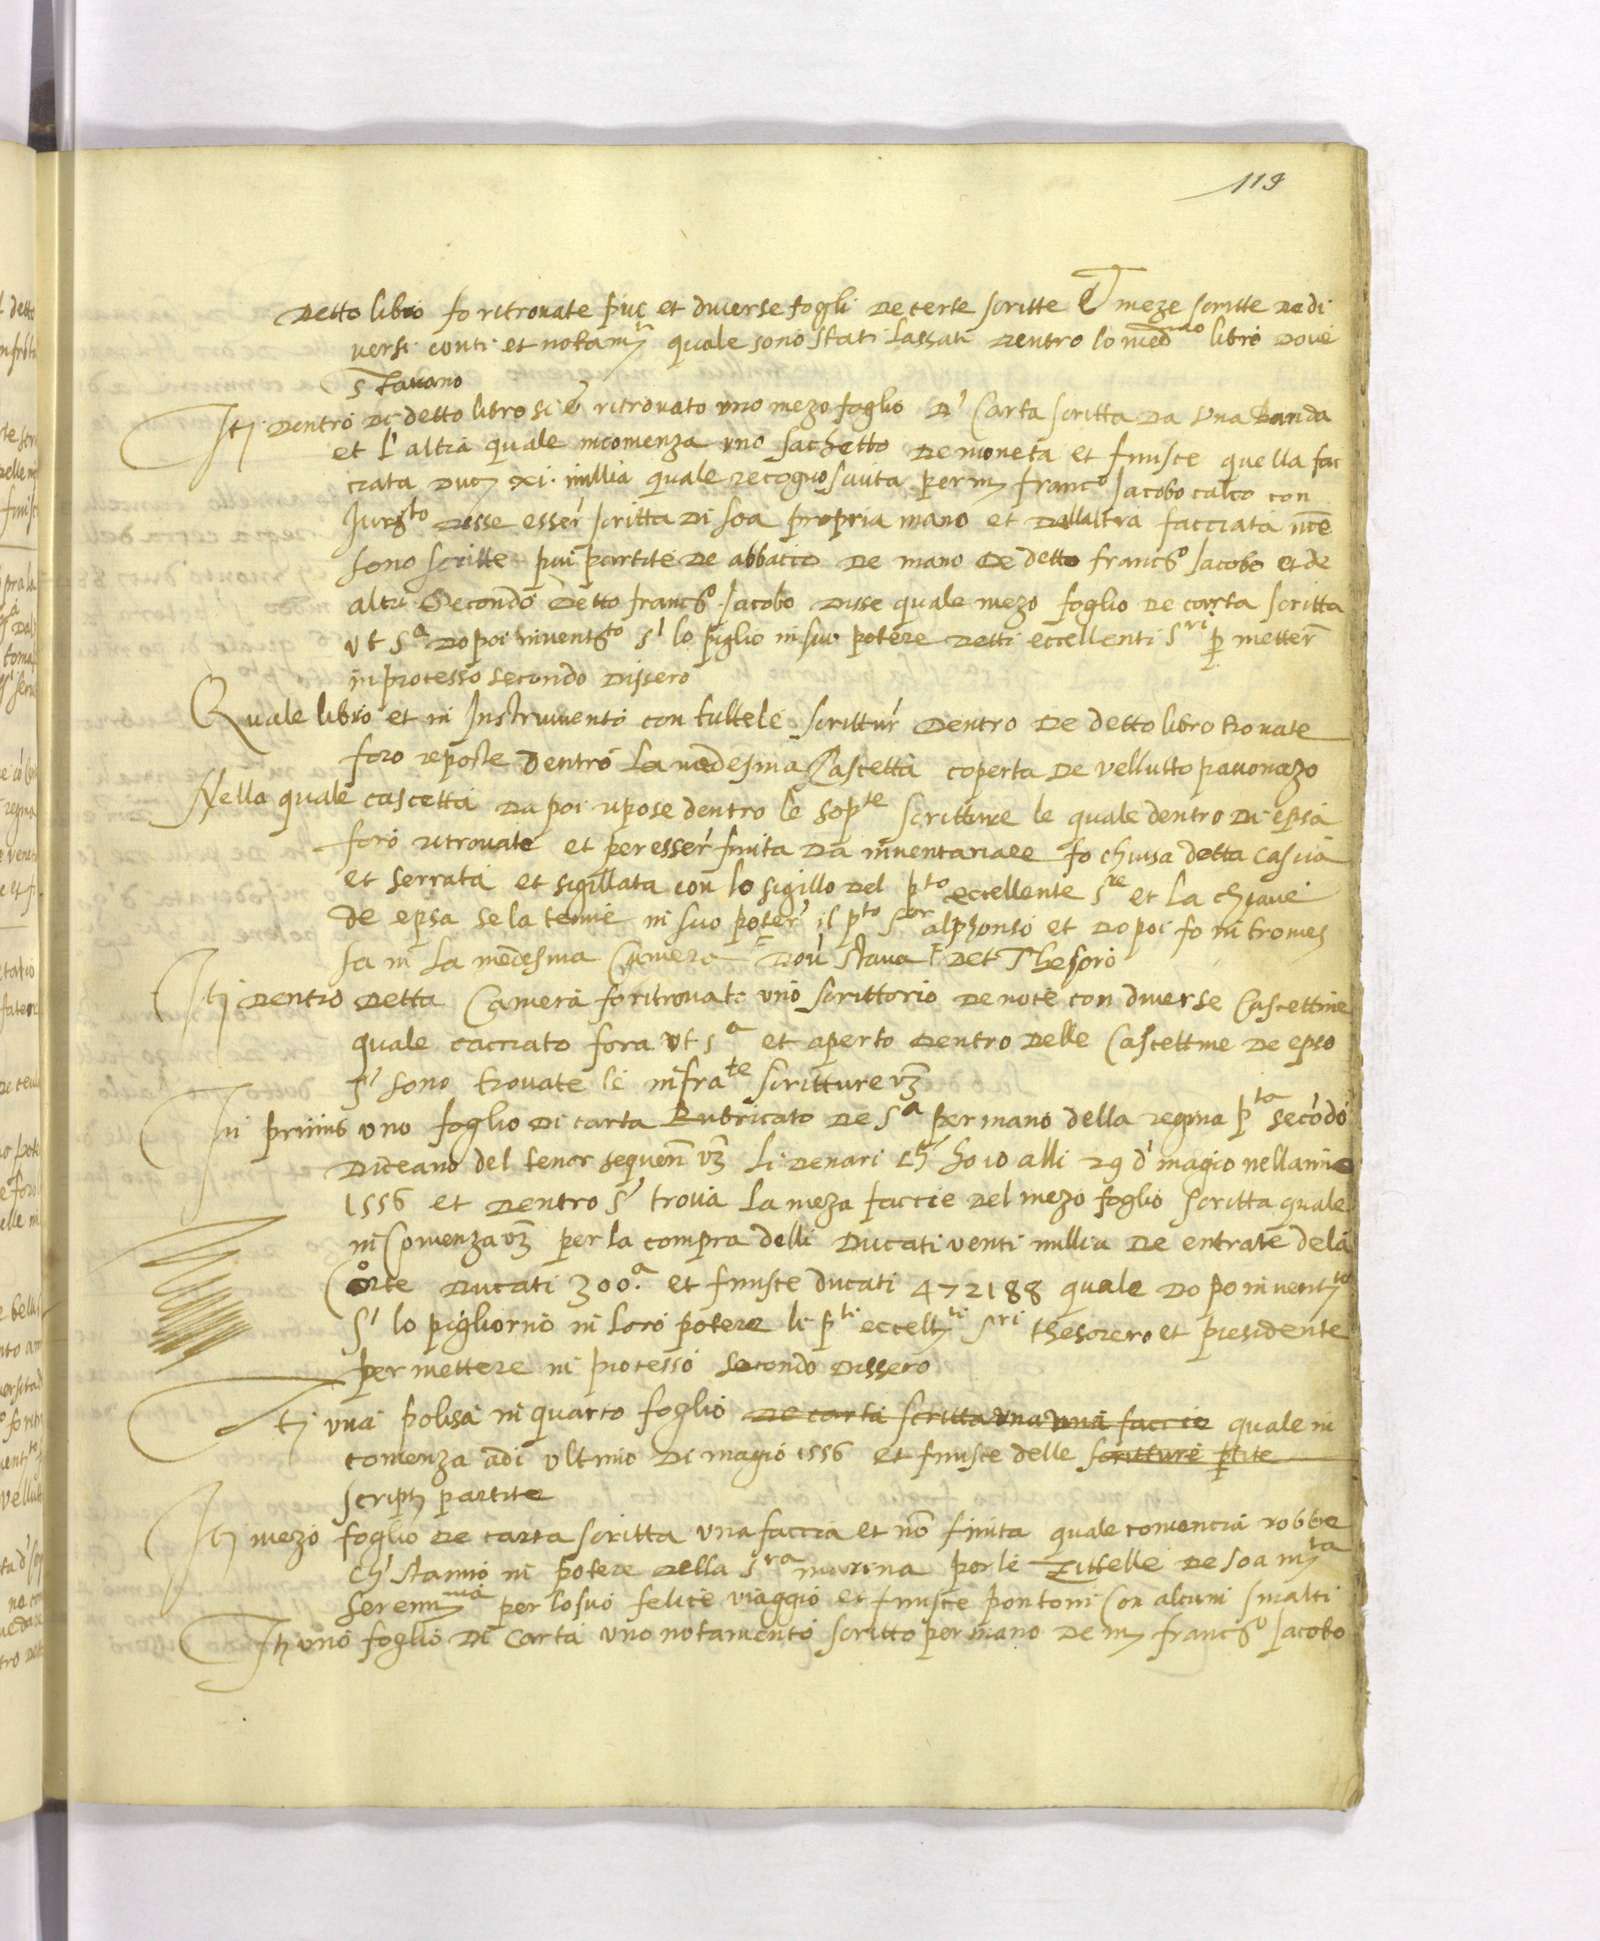 119
Detto libro fo ritrovate piu et diverse fogli de certe scritte et meze scritte de di
versi conti et notamti quale sono stati lassati dentro lo medmo libro dove
stavano
Itj dentro di detto libro si è ritrovato uno mezo foglio d' carta scritta da una banda
et l'altra quale incomenza uno sachetto de moneta et finisce quella fac
ciata duc xi. millia quale recognosciuta per mj francco Jacobo calco con
Iurto disse esser' scritta di soa propria mano et dallaltra facciata
sono scritte piu partite de abbacco de mano de detto francco Jacobo et de
altri secondo detto francco Jacobo disse quale mezo foglio de carta scritta
ut sa dopoi inventto s' lo piglio in suo potere detti eccellenti sri p metter
in processo secondo dissero
Quale libro et in Instrumento con tuttele scrittur' dentro de detto libro trovate
foro reposte dentro la medesma Cascetta coperta de vellutto pavonazo
Nella quale cascetta da poi ripose dentro le sopte scritture le quale dentro di epsa
foro ritrovate et per esser' finita da inventariare fo chiusa detta cascia
et serrata et sigillata con lo sigillo del pto eccellente sre et la chiave
de epsa se la tenne in suo poter' il pto sor alphonso et dopoi fo intromes
sa in la medesma Camera dov' stava det Thesoro
Itj dentro detta Camera fo ritrovato uno scrittorio de noce con diverse Cascettine
quale cacciato fora ut sa et aperto dentro delle Cascettine de epso
s' sono trovate le infrate scritture vz
In primis uno foglio di carta Rubricato de sa per mano della regina pta secodo
diceano del tenor sequen vz Li denari ch' ho io alli 29 d' magio nellanno
1556 et dentro s' trova la meza faccie del mezo foglio scritta quale
in Comenza vz per la compra delli Ducati venti millia de entrate dela
Corte Ducati 300.a et finisce ducati 472188 quale do po inventto
s' lo pigliorno in loro potere li pti eccellti sri thesorero et presidente
per mettere in processo secondo dissero
Itj una polisa in quarto foglio de carta scritta una una faccie quale in
comenza adi ultimo di magio 1556 et finisce delle scritture ptite
script partite
Itj mezo foglio de carta scritta una faccia et no finita quale comencia robbe
ch' stanno in potere della sra marina per le Zittelle de soa mta
serenma per lo suo felice viaggio et finisce pontoni con alcuni smalti
Itj uno foglio di carta uno notamento scritto per mano de mj francco Jacobo